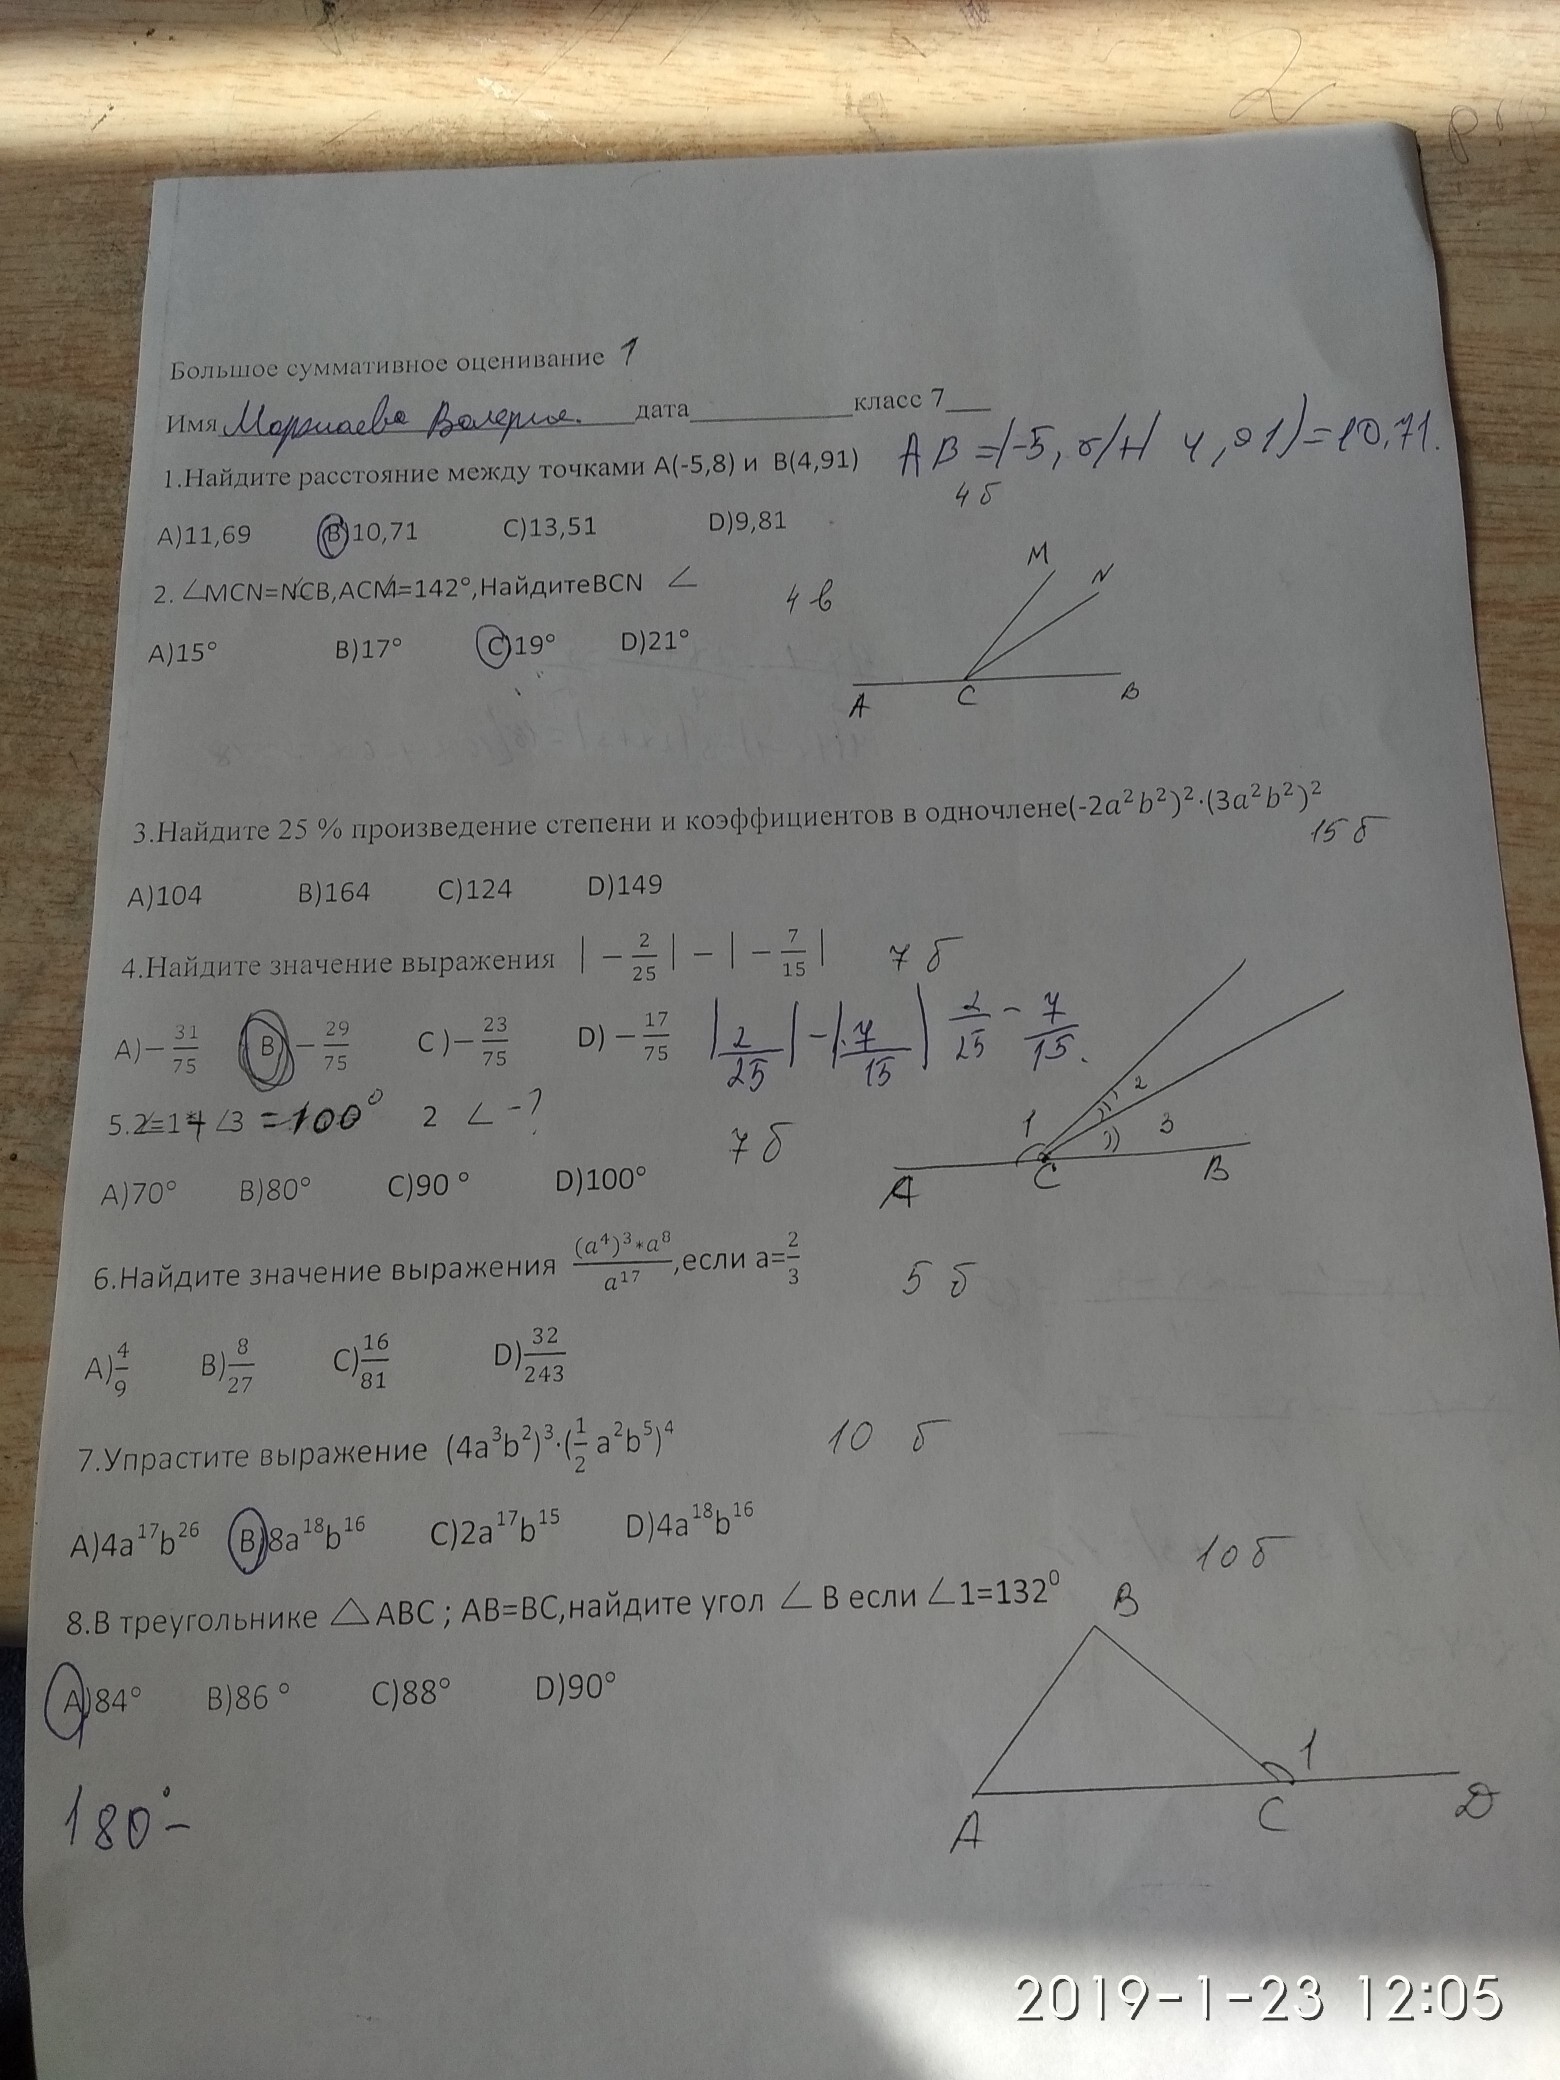 Большое суммативное оценивание 1
Имя Валерия. дата класс 7
1.Найдите расстояние между точками А(-5,8) и В(4,91) AB = = 10,71.
4 б
A)11,69 B)10,71 C)13,51 D)9,81
2. ∠MCN=NCB,ACM=142°,НайдитеBCN ∠ 4 в
A)15° B)17° C)19° D)21°
M N
A C B
3.Найдите 25 % произведение степени и коэффициентов в одночлене(-2a²b²)²·(3a²b²)²
15 б
A)104 B)164 C)124 D)149
4.Найдите значение выражения |−2/25| − |−7/15| 7 б
A)−31/75 B)−29/75 C)−23/75 D)−17/75 |2/25| − |7/15| 2/25 − 7/15.
5.2=1+∠3 =100° 2 ∠ -? 7 б
A)70° B)80° C)90° D)100°
1 2 3
A C B
6.Найдите значение выражения (a⁴)³*a⁸/a¹⁷,если a=2/3 5 б
A)4/9 B)8/27 C)16/81 D)32/243
7.Упрастите выражение (4a³b²)³·(1/2 a²b⁵)⁴ 10 б
A)4a¹⁷b²⁶ B)8a¹⁸b¹⁶ C)2a¹⁷b¹⁵ D)4a¹⁸b¹⁶
10 б
8.В треугольнике △ABC ; AB=BC,найдите угол ∠ B если ∠1=132⁰
A)84° B)86° C)88° D)90°
B
1
A C D
180°−
2019-1-23 12:05